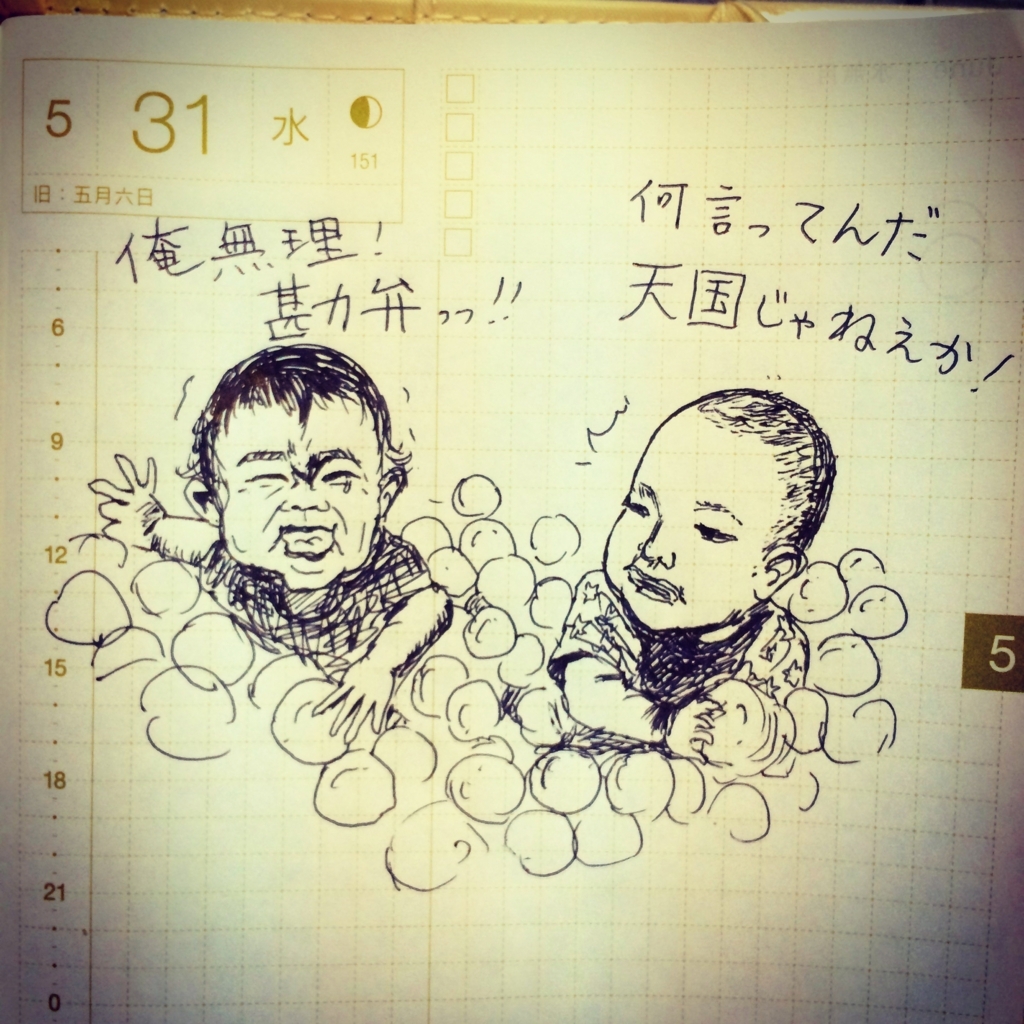 5 31 水
151
旧：五月六日
俺無理！
勘弁っっ!!
何言ってんだ
天国じゃねえか！
6
9
12
15
5
18
21
0